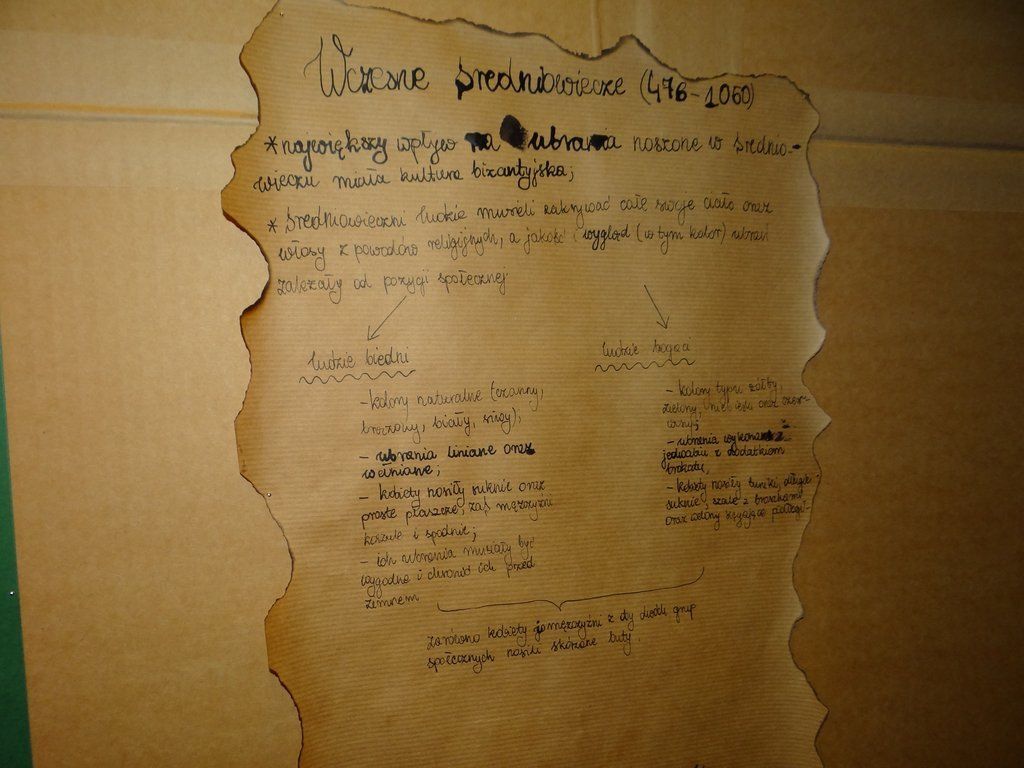 Wczesne średniowiecze (476-1060)
*największy wpływ na ubrania noszone w średnio-
wieczu miała kultura bizantyjska;
* Średniowieczni ludzie musieli zakrywać całe swoje ciało oraz
włosy z powodów religijnych, a jakość i wygląd (w tym kolor) ubrań
zależały od pozycji społecznej
ludzie biedni
- kolory naturalne (czarny,
brązowy, biały, siwy);
- ubrania lniane oraz
wełniane;
- kobiety nosiły suknie oraz
proste płaszcze, zaś mężczyźni
koszule i spodnie;
- ich ubrania musiały być
wygodne i chronić ich przed
zimnem
ludzie bogaci
- kolory typu żółty,
zielony, niebieski oraz czer-
wony;
- ubrania wykonane z
jedwabiu z dodatkiem
brokatu,
- kobiety nosiły tuniki, długie
suknie, szale z broszkami
oraz welony
zarówno kobiety jo mężczyźni z obu grup
społecznych nosili skórzane buty.